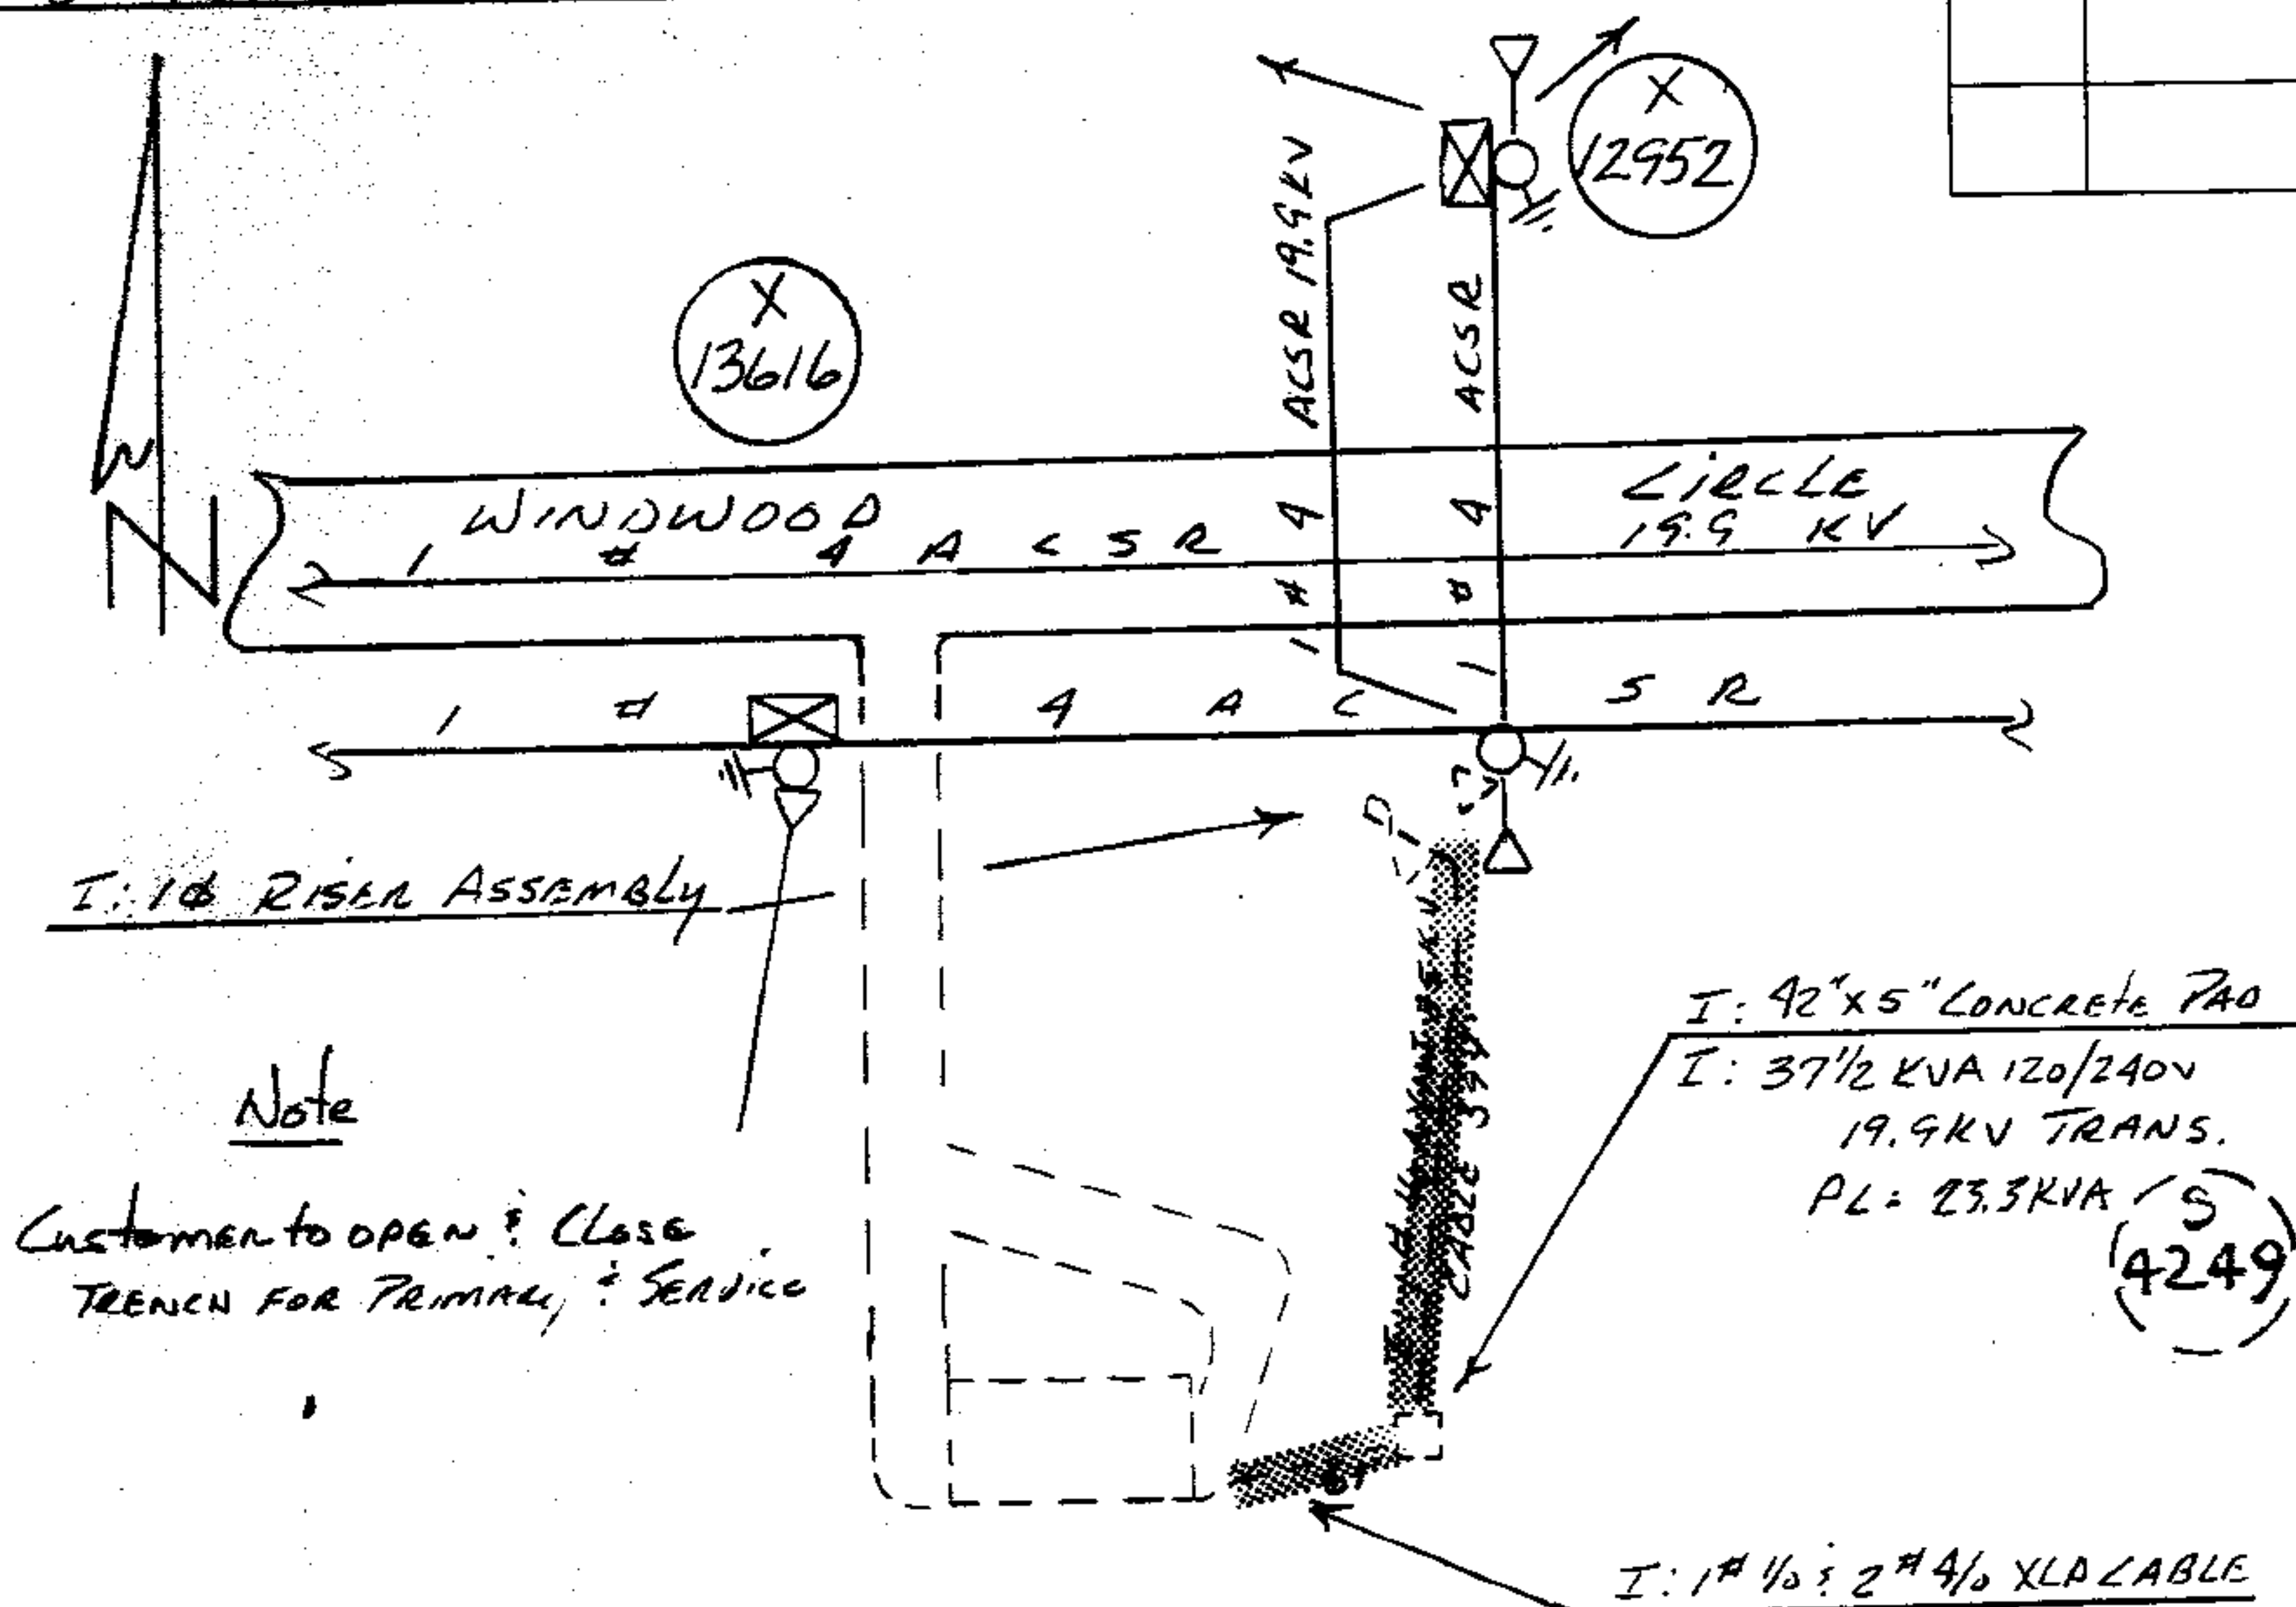 X
12952
X
13616
1 # 4 ACSR 19.9 KV
1 # 4 ACSR
WINDWOOD CIRCLE
1 # 4 ACSR 19.9 KV
1 # 4 ACSR
I: 1Ø RISER ASSEMBLY
N
I: 42" X 5" CONCRETE PAD
I: 37 1/2 KVA 120/240V
19.9KV TRANS.
PL = 23.3KVA
S
4249
Note
Customer to OPEN & CLOSE
TRENCH FOR PRIMARY & SERVICE
CABLE
I: 1# 1/0 & 2# 4/0 XLP CABLE